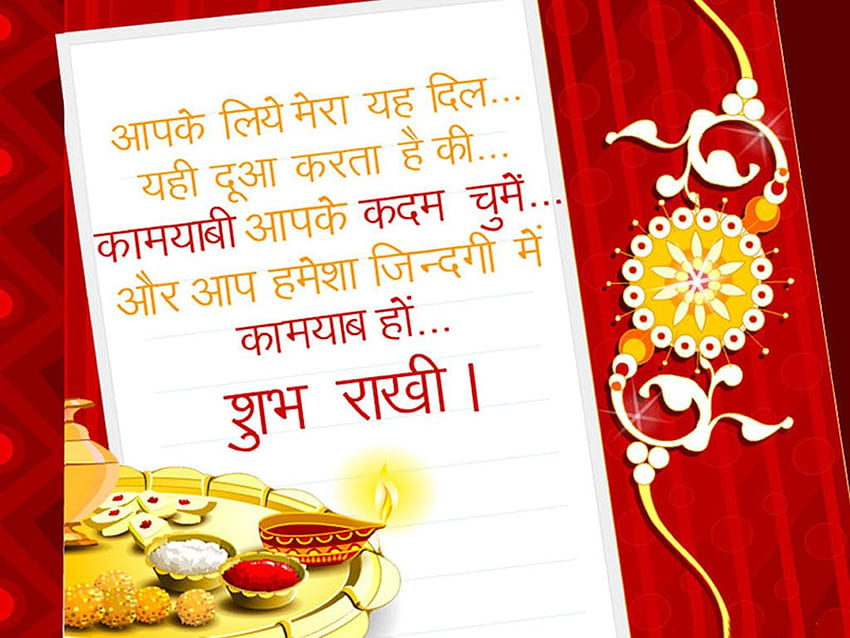 आपके लिये मेरा यह दिल...
यही दूआ करता है की...
कामयाबी आपके कदम चुमें...
और आप हमेशा जिन्दगी में
कामयाब हों...
शुभ राखी।